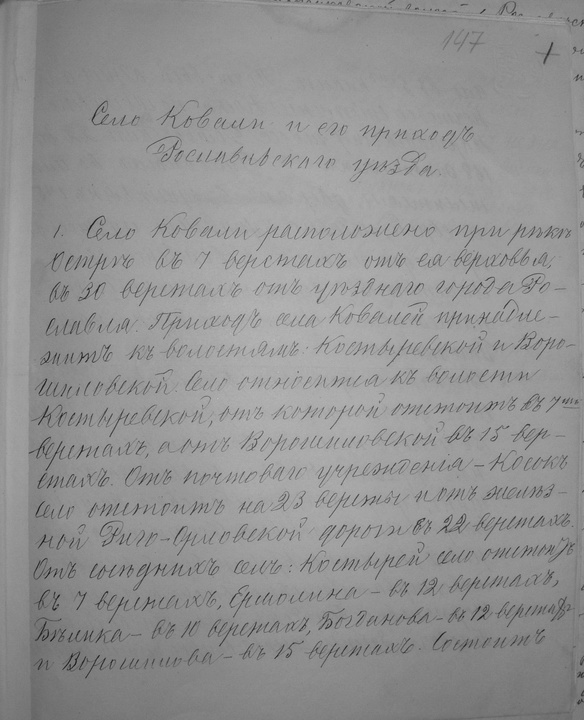 147
Село Ковали и его приходъ
Рославльскаго уѣзда.
1. Село Ковали расположено при рѣкѣ
Острѣ въ 7 верстахъ отъ ея верховья,
въ 30 верстахъ отъ уѣзднаго города Ро-
славля. Приходъ села Ковалей принадле-
житъ къ волостямъ: Костыревской и Воро-
шиловской. Село относится къ волости
Костыревской, отъ которой отстоитъ въ 7ми
верстахъ, а отъ Ворошиловской въ 15 вер-
стахъ. Отъ почтоваго учрежденія – Косокъ
село отстоитъ на 23 версты и отъ желѣз-
ной Риго-Орловской дороги въ 22 верстахъ.
Отъ сосѣднихъ селъ: Костырей село отстоитъ
въ 7 верстахъ, Ермолина – въ 12 верстахъ,
Бѣлика – въ 10 верстахъ, Богданова – въ 12 верстахъ
и Ворошилова – въ 15 верстахъ. Состоитъ